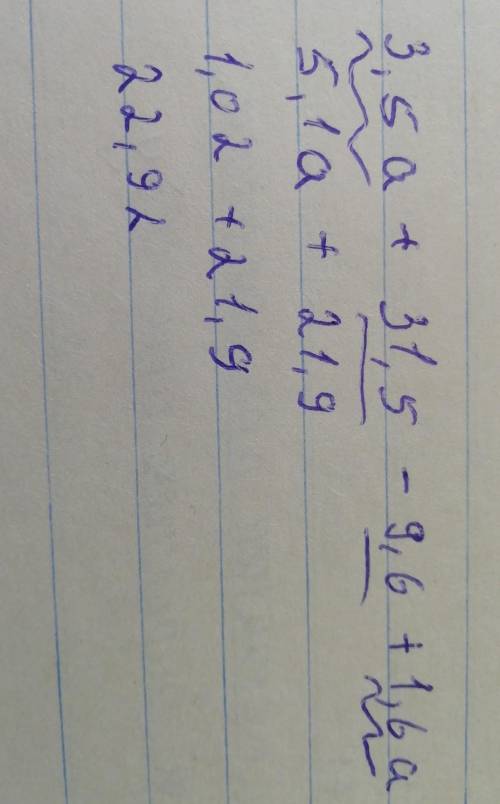 3,5a + 31,5 - 9,6 + 1,6a
5,1a + 21,9
1,02 + 21,9
22,92